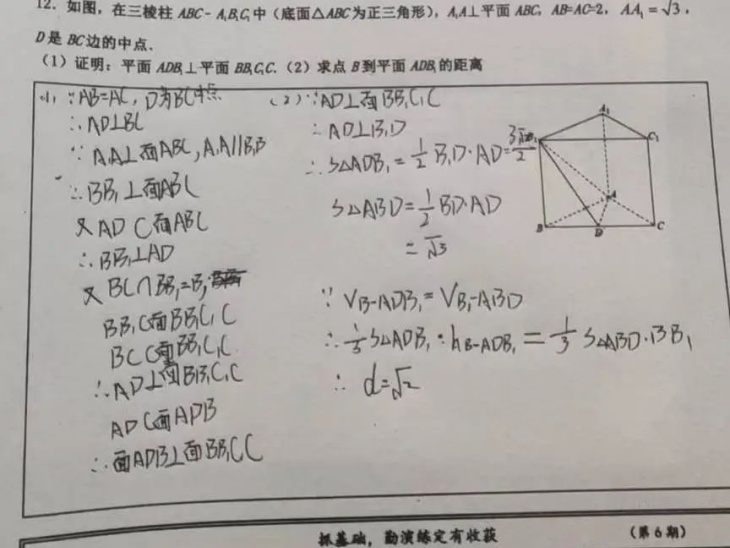 12. 如图，在三棱柱 ABC－A₁B₁C₁中（底面△ABC为正三角形），A₁A⊥平面 ABC，AB=AC=2，AA₁=√3，
D是 BC边的中点．
（1）证明：平面 ADB₁⊥平面 BB₁C₁C.（2）求点 B到平面 ADB₁的距离
(1) ∵AB=AC，D为BC中点
∴AD⊥BC
∵A₁A⊥面ABC，A₁A//B₁B
∴BB₁⊥面ABC
又AD⊂面ABC
∴BB₁⊥AD
又BC∩BB₁=B，
BB₁⊂面BB₁C₁C
BC⊂面BB₁C₁C
∴AD⊥面BB₁C₁C
AD⊂面ADB
∴面ADB⊥面BB₁CC
(2) ∵AD⊥面BB₁C₁C
∴AD⊥B₁D
∴S△ADB₁=1/2 B₁D·AD=
S△ABD=1/2 BD·AD
=√3
∵VB-ADB₁=VB₁-ABD
∴1/3 S△ADB₁·hB-ADB₁=1/3 S△ABD·BB₁
∴d=√2
A₁
C₁
A
B
D
C
抓基础，勤演练定有收获
（第6期）